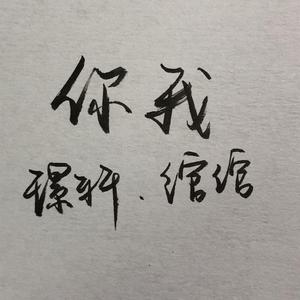 你我
璟轩、绾绾